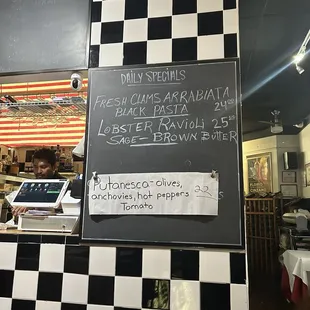 DAILY SPECIALS
FRESH CLAMS ARRABIATA
BLACK PASTA 24.95
LOBSTER RAVIOLI 25.95
SAGE - BROWN BUTTER
Putanesca - olives,
anchovies, hot peppers 22.95
Tomato